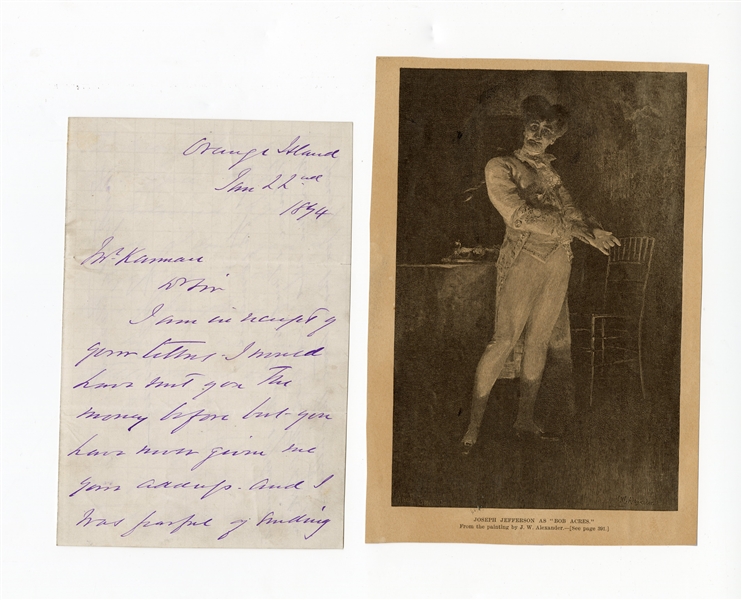 Orange Island
Jan 22nd
1894
Mr. Kernan
Dr Sir
I am in receipt of
your letters. I would
have sent you the
money before but you
have never given me
your address. and I
was fearful of sending
JOSEPH JEFFERSON AS "BOB ACRES."
From the painting by J. W. Alexander.—[See page 310.]